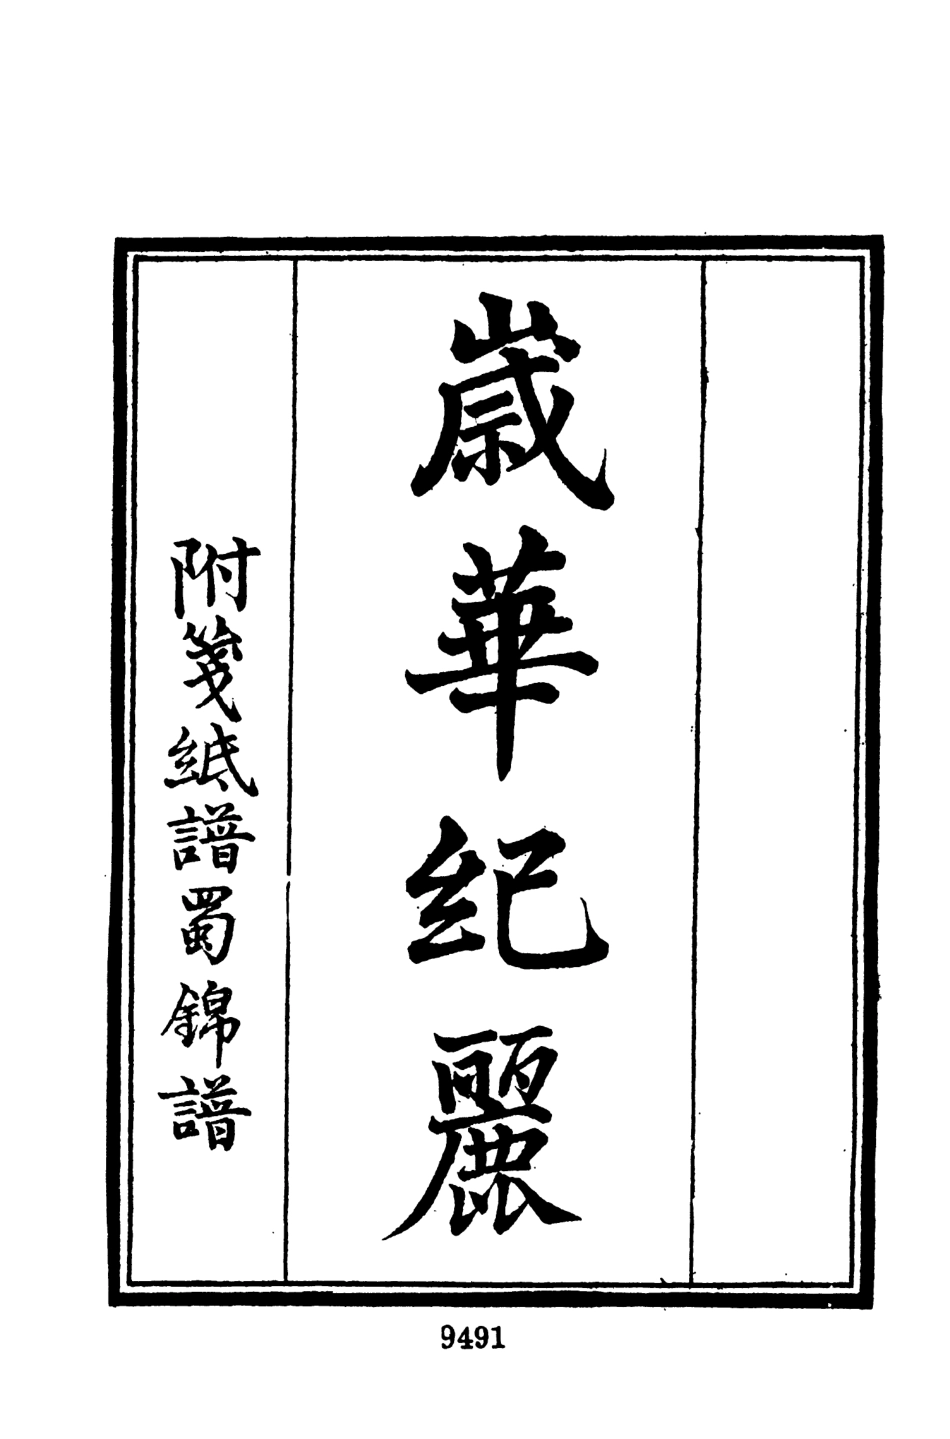 歲華紀麗
附箋紙譜蜀錦譜
9491